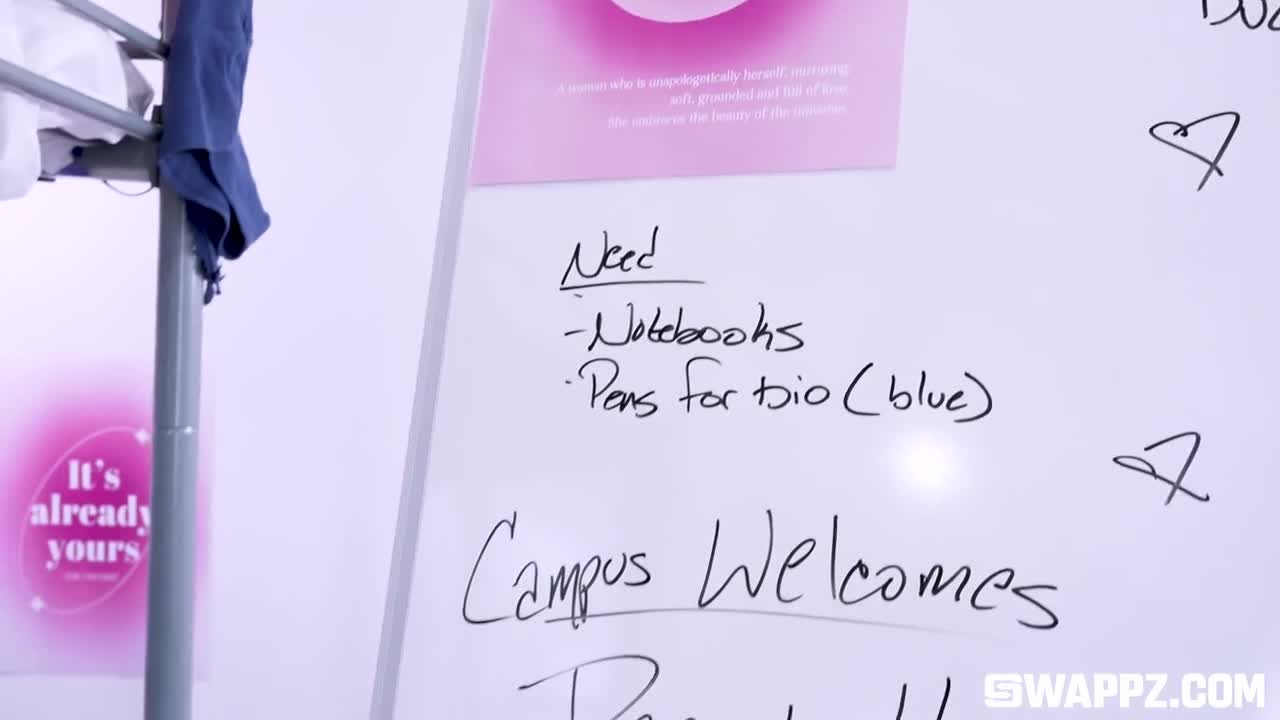 A woman who is unapologetically herself, nurturing
soft, grounded and full of love
She embraces the beauty of the universe.
Need
-Notebooks
-Pens for bio (blue)
Campus Welcomes
It's
already
yours
SWAPPZ.COM